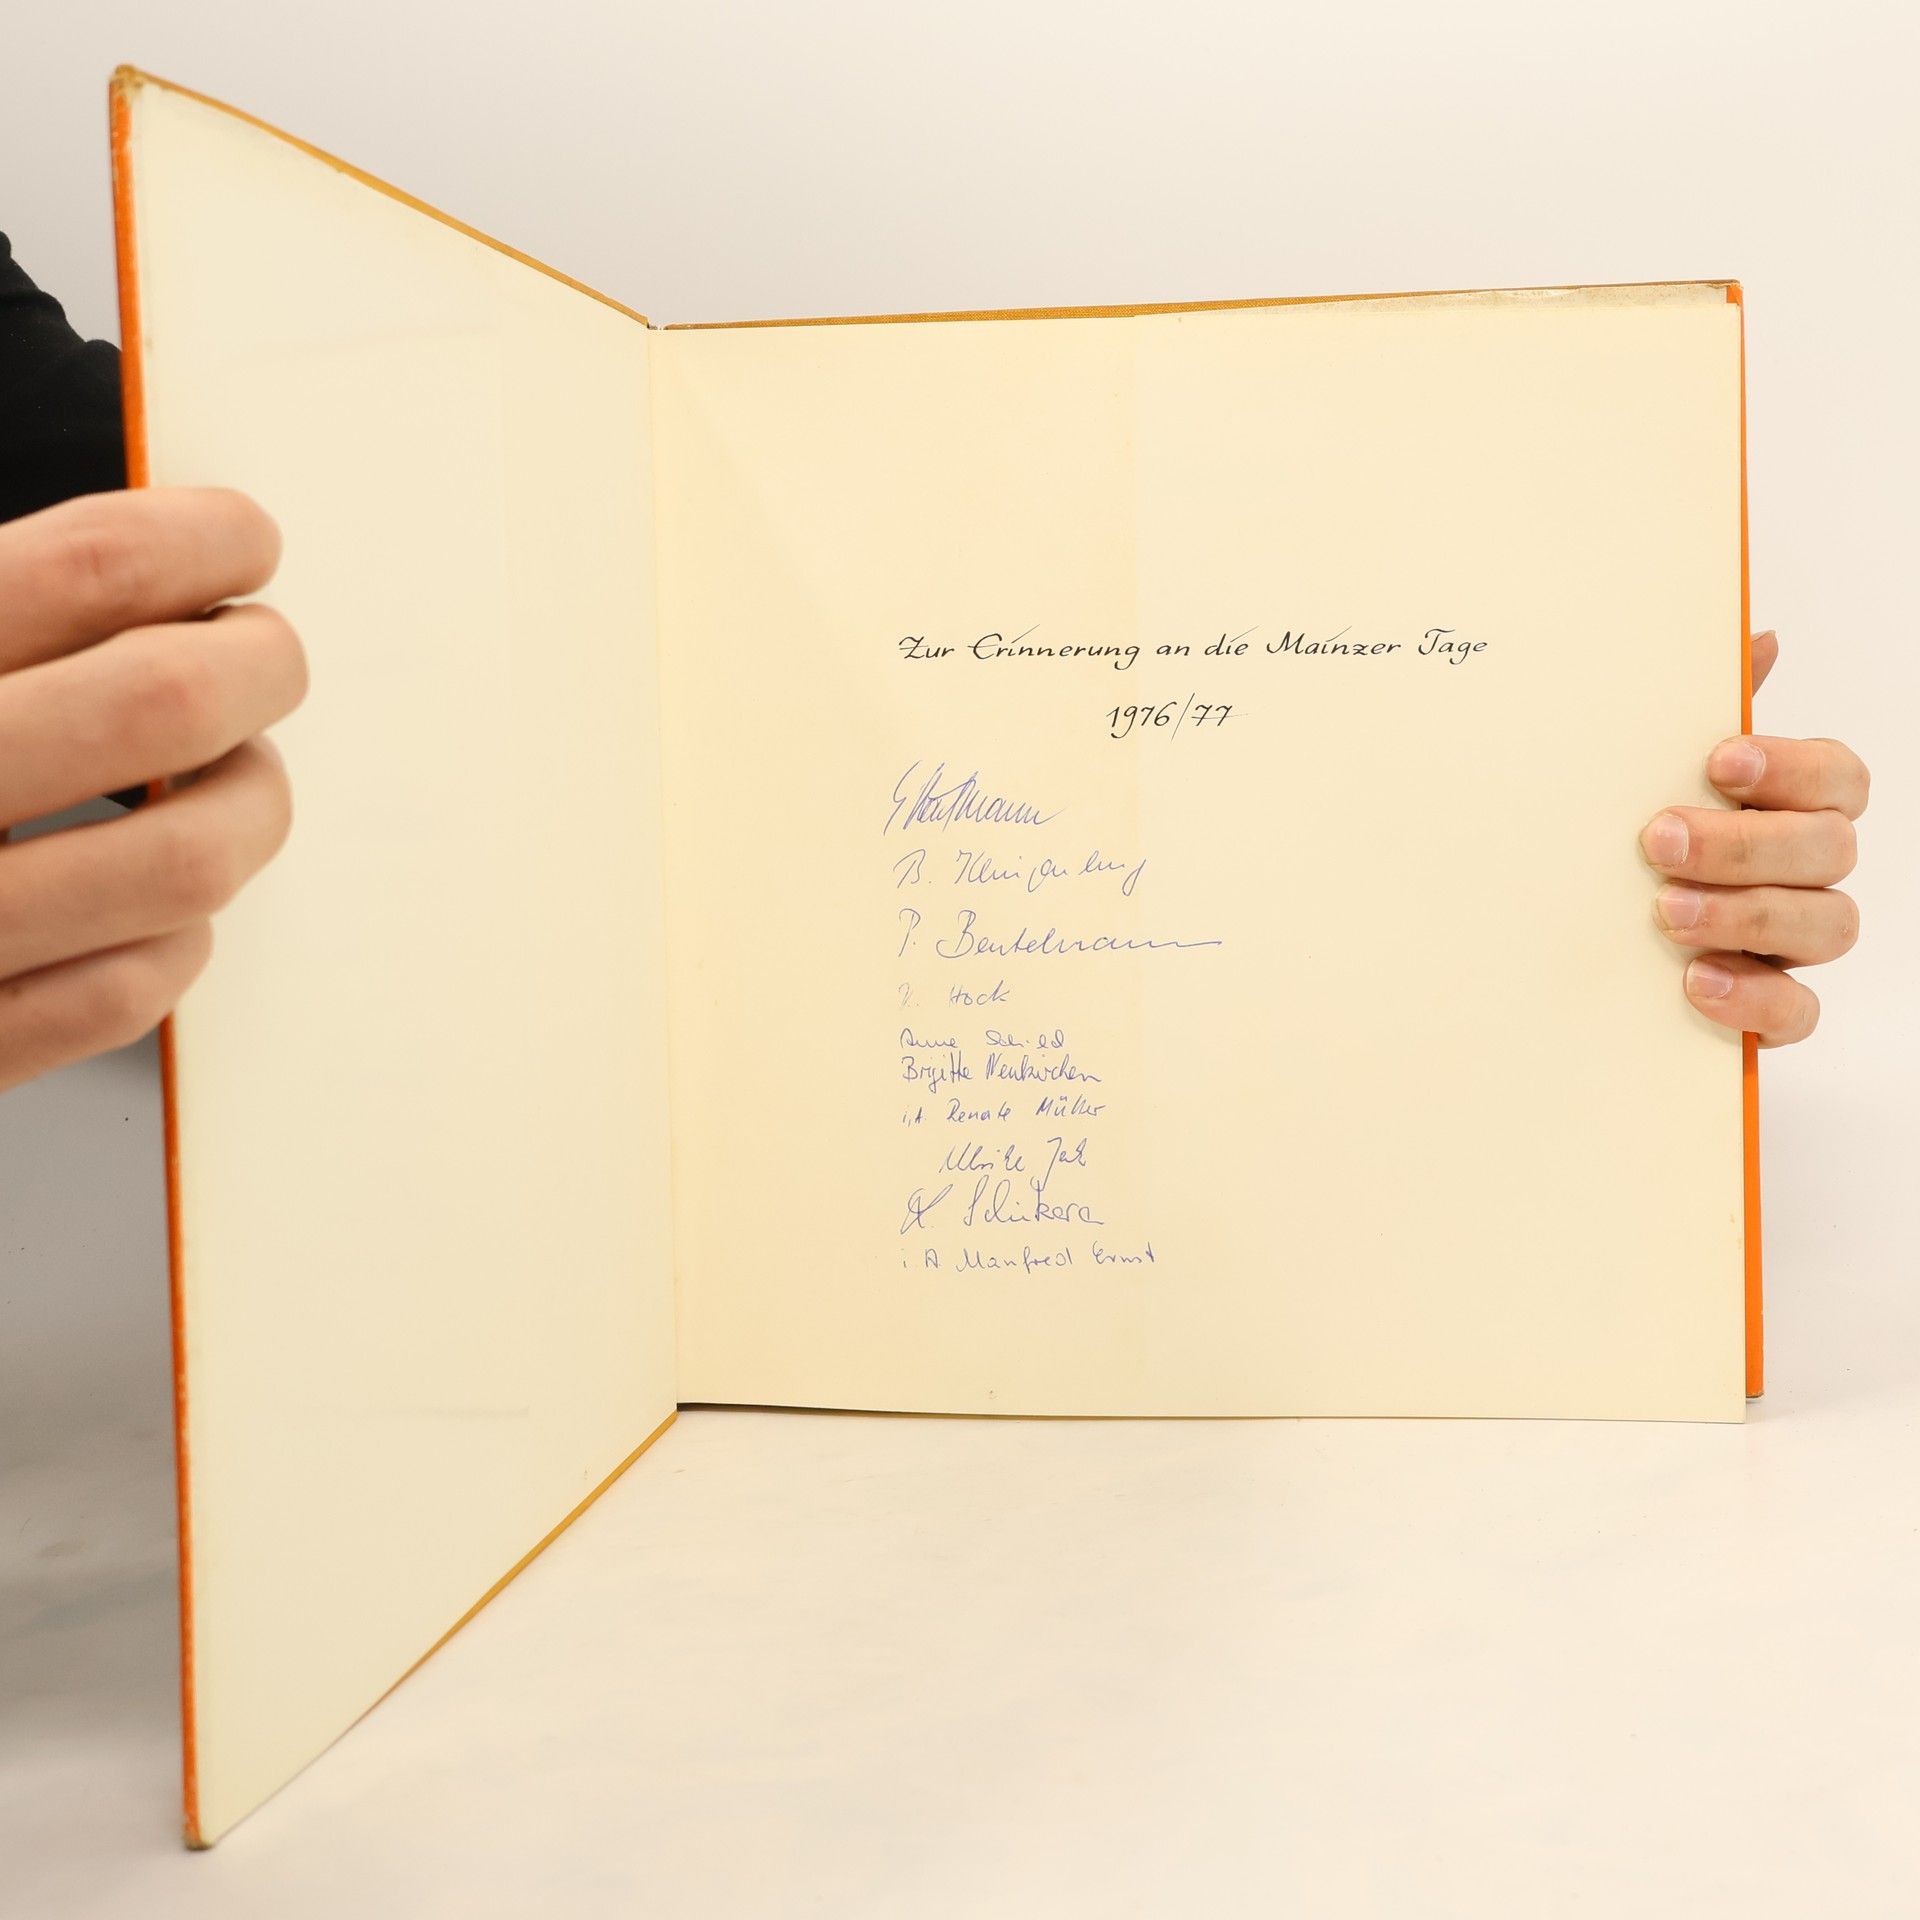 Zur Erinnerung an die Mainzer Tage
1976/77
B.
P. Beutelmann
Hock
Anne Schied
Brigitte Neukirchen
i.A. Renate Müller
Ulrike
i. A Manfred Ernst